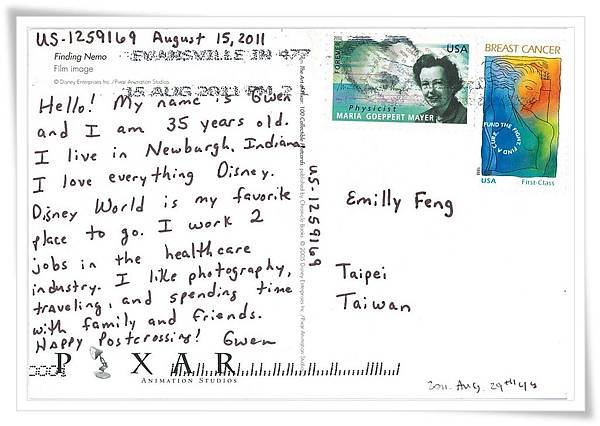 US-1259169 August 15, 2011
Finding Nemo
Film image
© Disney Enterprises Inc./Pixar Animation Studios
EVANSVILLE IN 477
15 AUG 2011 PM
Hello! My name is Gwen
and I am 35 years old.
I live in Newburgh, Indiana.
I love everything Disney.
Disney World is my favorite
place to go. I work 2
jobs in the healthcare
industry. I like photography,
traveling, and spending time
with family and friends.
Happy Postcrossing! Gwen
PIXAR
ANIMATION STUDIOS
The Art of Pixar: 100 Collectible Postcards published by Chronicle Books. © 2005 Disney Enterprises Inc./Pixar Animation Studios
US-1259169
FOREVER
USA
Physicist
MARIA GOEPPERT MAYER
BREAST CANCER
FUND THE FIGHT. FIND A CURE.
1998
USA First-Class
Emilly Feng
Taipei
Taiwan
2011. Aug. 29th